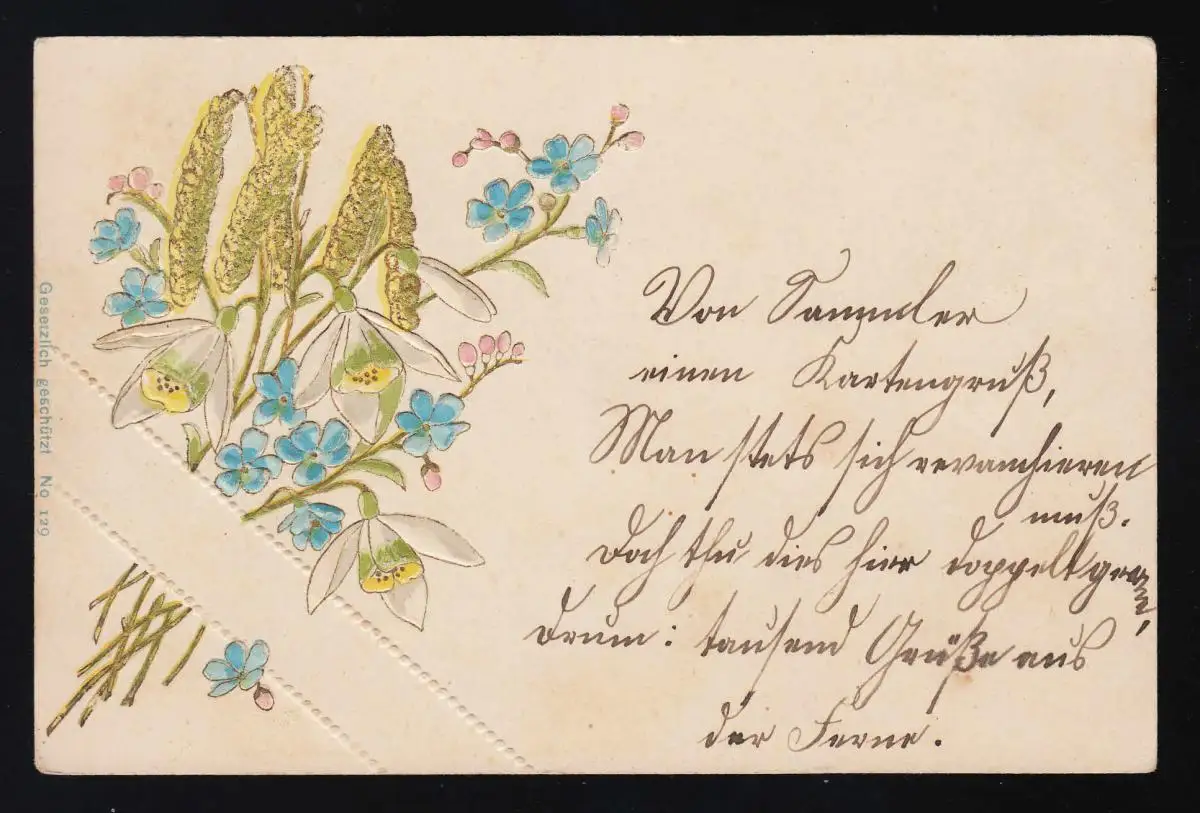 Gesetzlich geschützt No 129
Von Sammler
einen Kartengruß,
Man stets sich revanchieren
muß.
Doch thu dies hier doppelt gerne,
Drum: tausend Grüße aus
der Ferne.